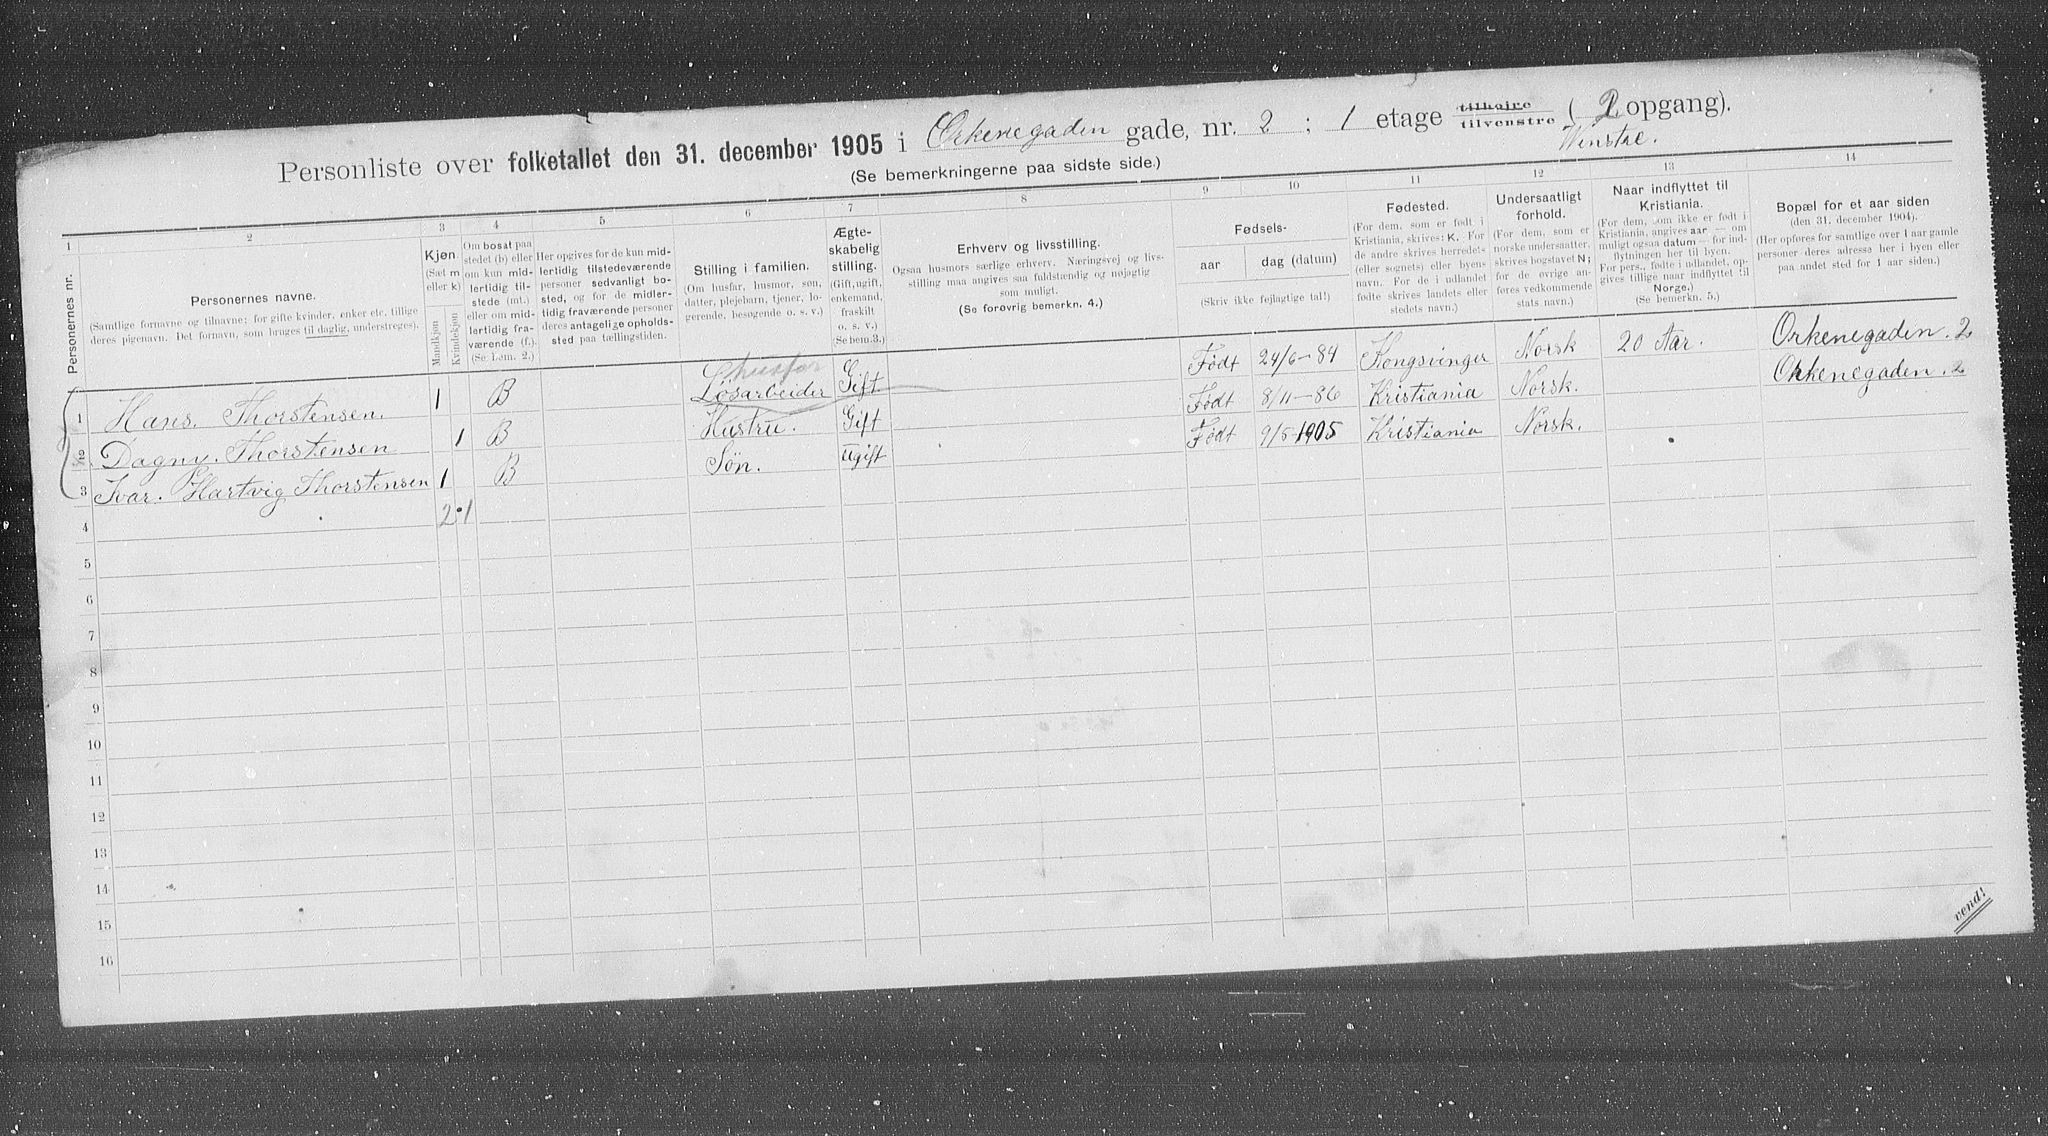 Personliste over folketallet den 31. december 1905 i Ørkenegaden gade, nr. 2 ; 1 etage tilhøire tilvenstre ( 2 opgang).
Winstre.
(Se bemerkningerne paa sidste side.)
1 2 3 4 5 6 7 8 9 10 11 12 13 14
Personernes nr.
Personernes navne.
(Samtlige fornavne og tilnavne; for gifte kvinder, enker etc. tillige
deres pigenavn. Det fornavn, som bruges til daglig, understreges).
Kjøn.
(Sæt m
eller k)
Mandkjøn
Kvindekjøn
Om bosat paa
stedet (b) eller
om kun mid-
lertidig til-
stede (mt.)
eller om mid-
lertidig fra-
værende (f.).
(Se bem. 2.)
Her opgives for de kun mid-
lertidig tilstedeværende
personer sedvanligt bo-
sted, og for de midler-
tidig fraværende personer
deres antagelige opholds-
sted paa tællingstiden.
Stilling i familien.
(Om husfar, husmor, søn,
datter, plejebarn, tjener, lo-
gerende, besøgende o. s. v.)
Ægte-
skabelig
stilling.
(Gift, ugift,
enkemand,
fraskilt
o. s. v.)
(Se bem. 3.)
Erhverv og livsstilling.
Ogsaa husmors særlige erhverv. Næringsvej og livs-
stilling maa angives saa fuldstændig og nøjagtig
som muligt.
(Se forøvrig bemerkn. 4.)
Fødsels-
aar
dag (datum)
(Skriv ikke fejlagtige tal!)
Fødested.
(For dem, som er født i
Kristiania, skrives: K. For
de andre skrives herredet-
(eller sognets) eller byens
navn. For de i udlandet
fødte skrives landets eller
stedets navn.)
Undersaatligt
forhold.
(For dem, som er
norske undersaatter,
skrives bogstavet N;
for de øvrige an-
føres vedkommende
stats navn.)
Naar indflyttet til
Kristiania.
(For dem, som ikke er født i
Kristiania, angives aar — om
muligt ogsaa datum — for ind-
flytningen her til byen.
For pers., født i udlandet, op-
gives tillige naar indflyttet til
Norge.)
(Se bemerkn. 5.)
Bopæl for et aar siden
(den 31. december 1904).
(Her opføres for samtlige over 1 aar gamle
personer deres adresse her i byen eller
paa andet sted for 1 aar siden.)
husfar
1 Hans. Thorstensen. 1 B Løsarbeider Gift Født 24/6-84 Kongsvinger Norsk 20 Aar. Orkenegaden. 2
2 Dagny. Thorstensen 1 B Hustru. Gift Født 8/11-86 Kristiania Norsk. Orkenegaden. 2
3 Ivar. Hartvig Thorstensen 1 B Søn. Ugift Født 9/5-1905 Kristiania Norsk.
4 2 1
5
6
7
8
9
10
11
12
13
14
15
16
vend!